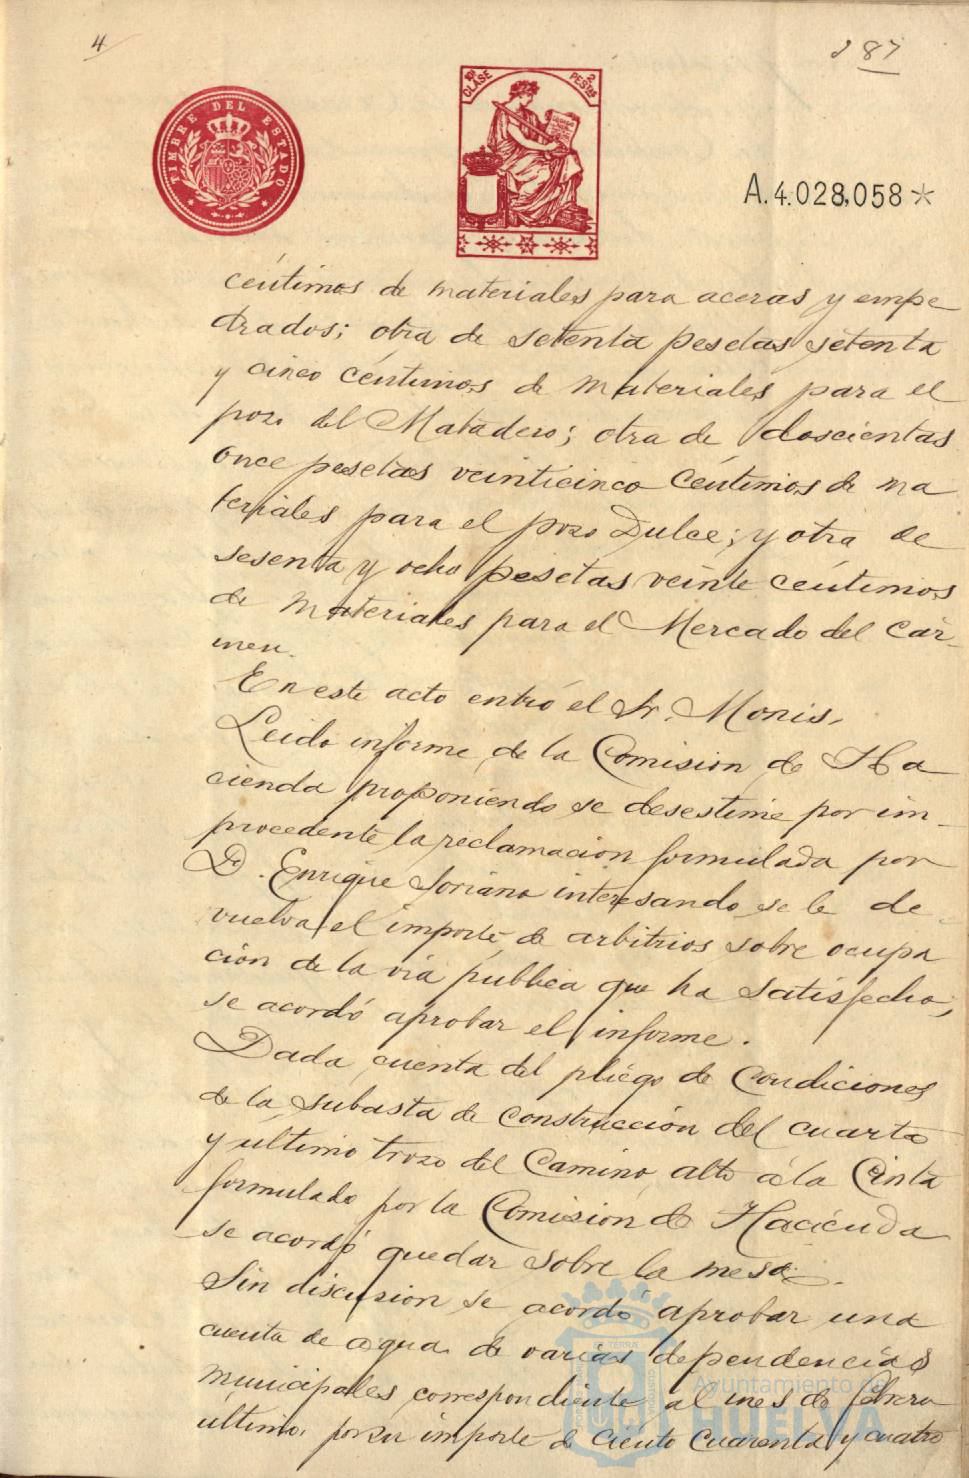 4
187
TIMBRE DEL ESTADO
10ª CLASE
2 PESTAS
A.4.028,058*
céntimos de materiales para aceras y empe
drados; otra de setenta pesetas setenta
y cinco céntimos de materiales para el
pozo del Matadero; otra de doscientas
once pesetas veinticinco céntimos de ma
teriales para el pozo Dulce; y otra de
sesenta y ocho pesetas veinte céntimos
de materiales para el Mercado del Cár-
men.
En este acto entró el Sr. Monis.
Leido informe de la Comision de Ha
cienda proponiendo se desestime por im-
procedente la reclamacion formulada por
D. Enrique Soriano interesando se le de
vuelva el importe de arbitrios sobre ocupa
ción de la via publica que ha satisfecho,
se acordó aprobar el informe.
Dada cuenta del pliego de Condiciones
de la subasta de construcción del cuarto
y último trozo del Camino alto á la Cinta
formulado por la Comisión de Hacienda
se acordó quedar sobre la mesa.
Sin discusion se acordó aprobar una
cuenta de agua de varias dependencias
municipales correspondiente al mes de febrero
último, por su importe de ciento cuarenta y cuatro
Ayuntamiento de
HUELVA